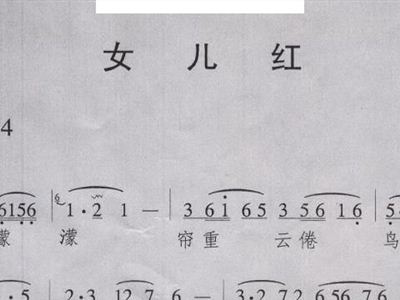 女儿红
4
6156 1·2 1 — | 3 61 65 3 56 16 | 5
濛 濛 帘重 云倦 鸟
2·3 127 6 — 3·27 2 656 76